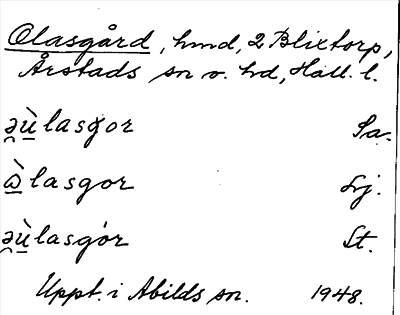 Olasgård, hmd, 2 Blixtorp,
Årstads sn o. hd, Hall. l.
ə̯ùlasgor Sa.
ɷ̀lasgor Lj.
ə̯ùlasgor St.
Uppt. i Abilds sn. 1948.